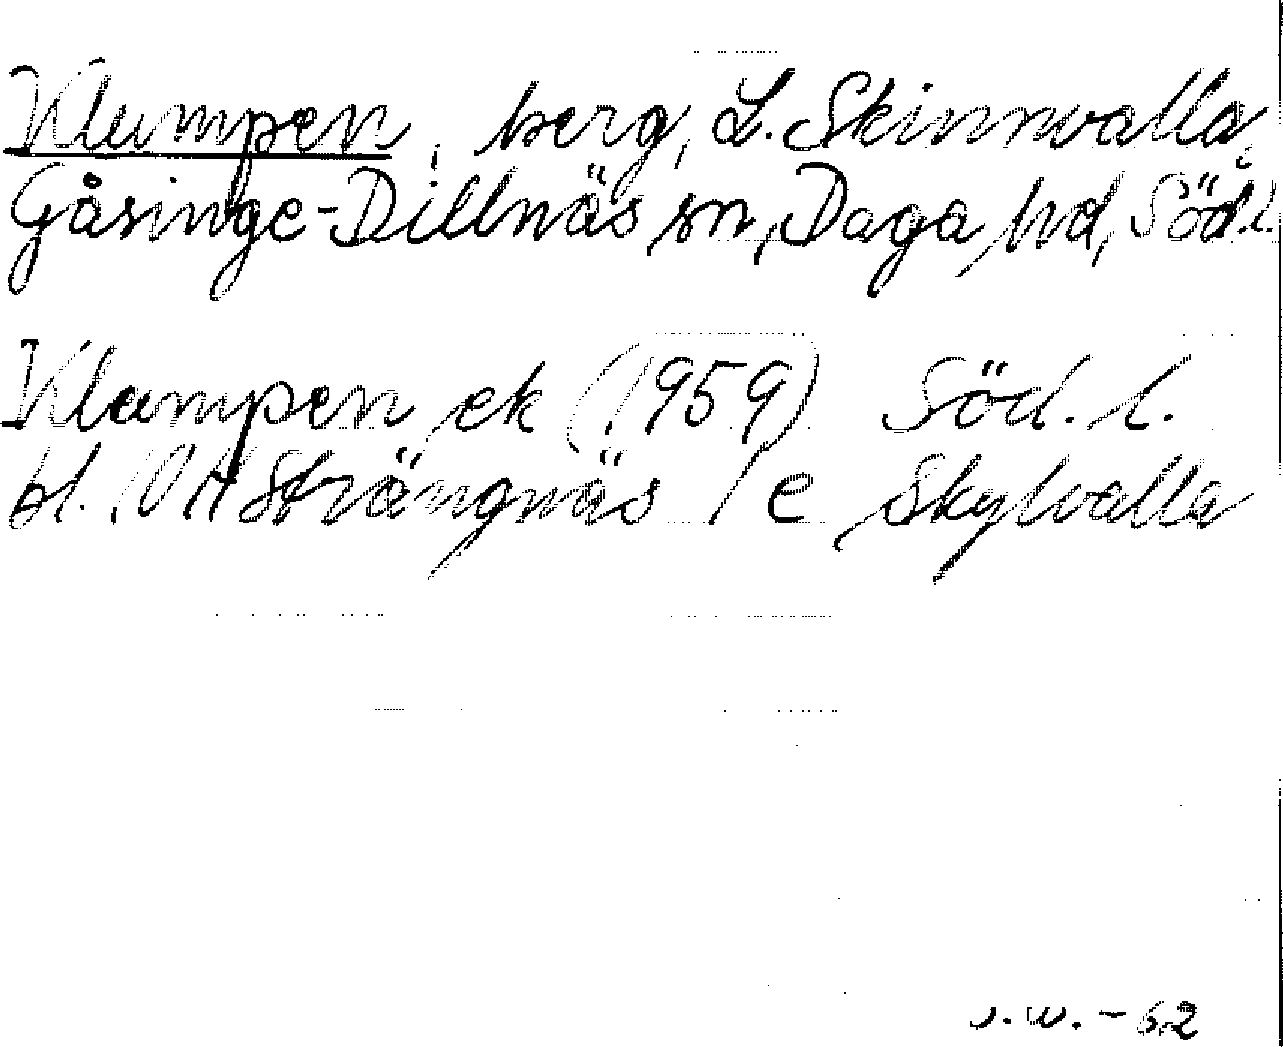 Klumpen, berg, L. Skinnvalla,
Gåsinge-Dillnäs sn, Daga hd, Söd.l.
Klumpen ek (1959) Söd. l.
bl. Strängnäs / e Skylvalla
- 62